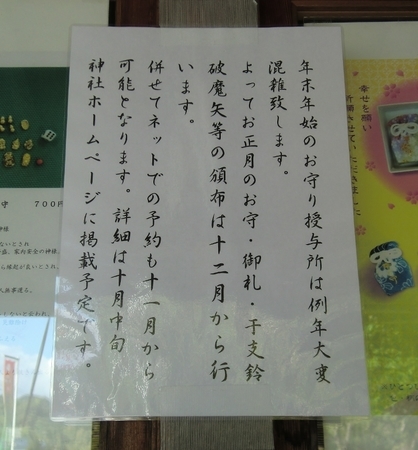 年末年始のお守り授与所は例年大変
混雑致します。
よってお正月のお守・御札・干支鈴
破魔矢等の頒布は十二月から行
います。
併せてネットでの予約も十一月から
可能となります。詳細は十月中旬
神社ホームページに掲載予定です。
幸せを願い
祈願させていただきました
守 700円